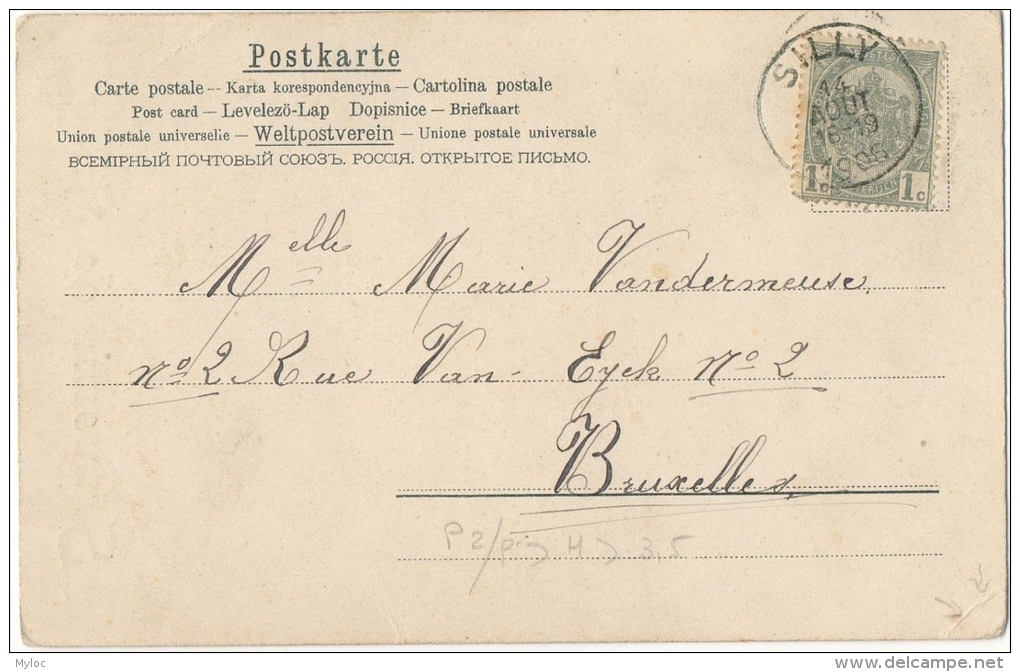 Postkarte
Carte postale -- Karta korespondencyjna – Cartolina postale
Post card – Levelezö-Lap Dopisnice – Briefkaart
Union postale universelle – Weltpostverein – Unione postale universale
ВСЕМІРНЫЙ ПОЧТОВЫЙ СОЮЗЪ. РОССІЯ. ОТКРЫТОЕ ПИСЬМО.
SILLY
14
AOUT
1906
1c 1c
Melle Marie Vandermeuse,
nº 2 Rue Van-Eyck Nº 2
Bruxelles,
3,5
Myloc
delcampe.net